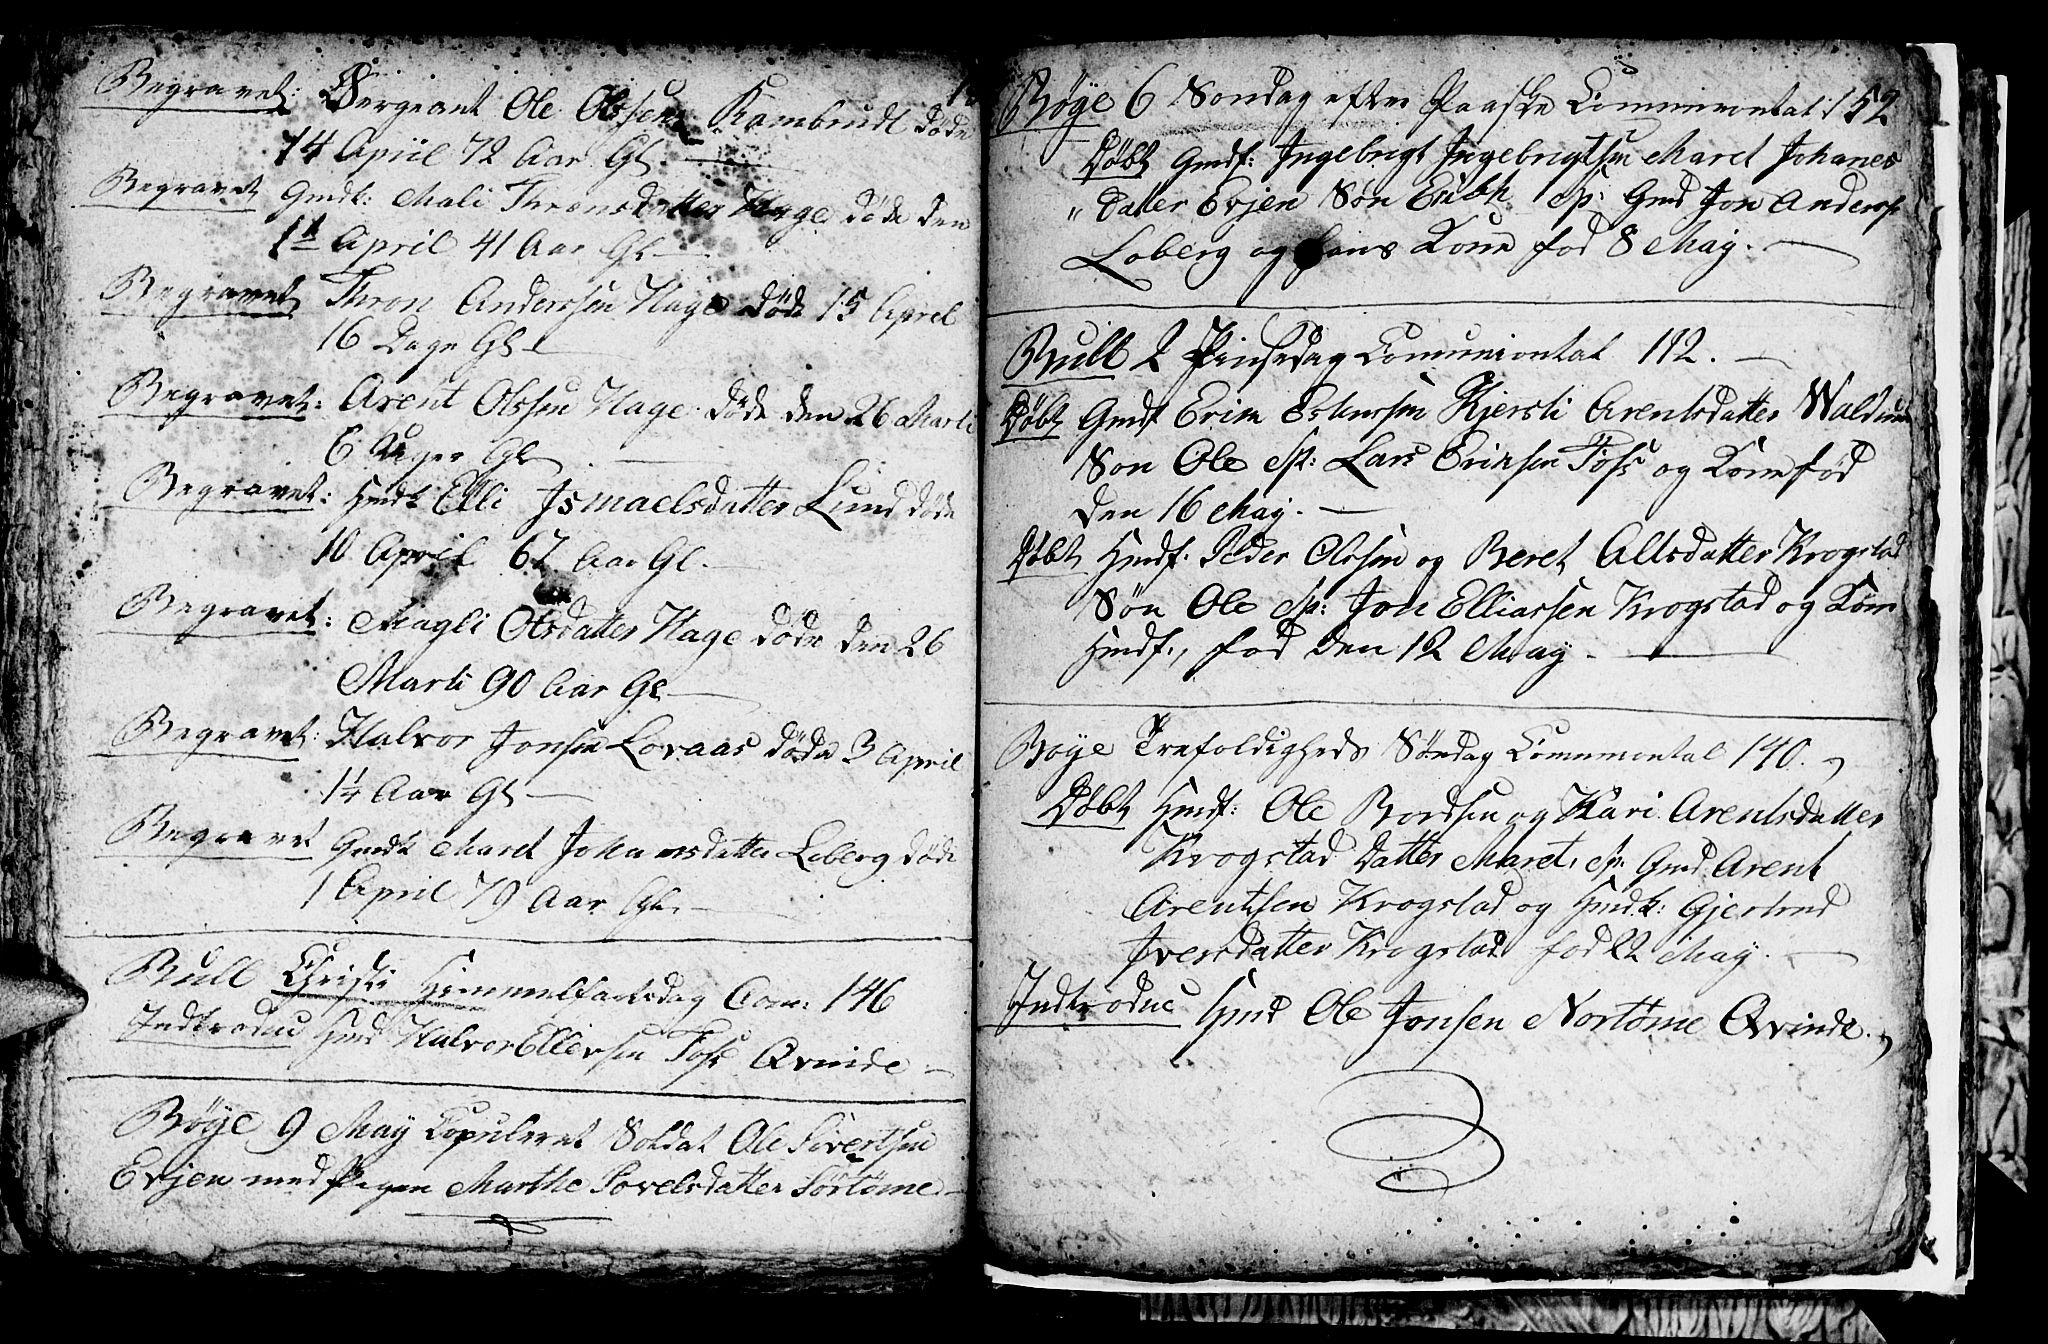 Begravet: Sergeant Ole Olssen Kambrudt døde
14 Apriil 72 Aar Gl.
Begravet Gmdk: Mali Thronsdatter Hage døde den
11 April 41 Aar Gl
Begravet Thron Anderssen Hage døde 15 April
16 Dage Gl
Begravet: Arent Olssen Hage døde den 26 Marti
6 Uger Gl
Begravet: Hmdk Elli Ismaelsdatter Lund døde
10 April 67 Aar Gl.
Begravet: Magli Olsdatter Hage døde den 26
Marti 90 Aar Gl
Begravet: Halvor Jonsen Lovaas døde 3 April
14 Aar Gl
Begravet Gmdk Maret Johannesdatter Loberg døde
1 April 79 Aar Gl.
Bull Christi Himmelfartsdag Com: 146
Indtroduc Hmd Halvor Ellevsen Foss Qvinde
Bøye 9 May Copuleret Soldat Ole Sivertsen
Evjen med Pigen Marthe Povelsdatter Sørtømme
Bøye 6 Søndag efter Paaske Communiontal: 152
Døbt Gmdf: Ingebrigt Ingebrigtsen Maret Johanes
" datter Evjen Søn Enbh sp: Gmd Jon Anderss
Loberg og hans Kone fod 8 May.
Bull 2 Pinsedag Comuniontal 112.
Døbt Gmdf Erik Estensen Kjersti Arentsdatter Waldum
Son Ole sp: Lars Eriksen Foss og Kone fød
den 16 May.
Døbt Hmdf. Peder Olssen og Beret Alfsdatter Krogstad
Søn Ole sp: Jon Elliassen Krogstad og Kone
Hmdf., fod den 12 May.
Boye Trefoldigheds Søndag Communiontal 140.
Døbt Hmdf: Ole Bordsen og Kari Arentsdatter
Krogstad datter Maret, sp: Gmd Arent
Arentsen Krogstad og Hmdk: Gjertrud
Iversdatter Krogstad fod 22 May.
Indtroduc Hmd Ole Jonsen Nortømme Qvinde.